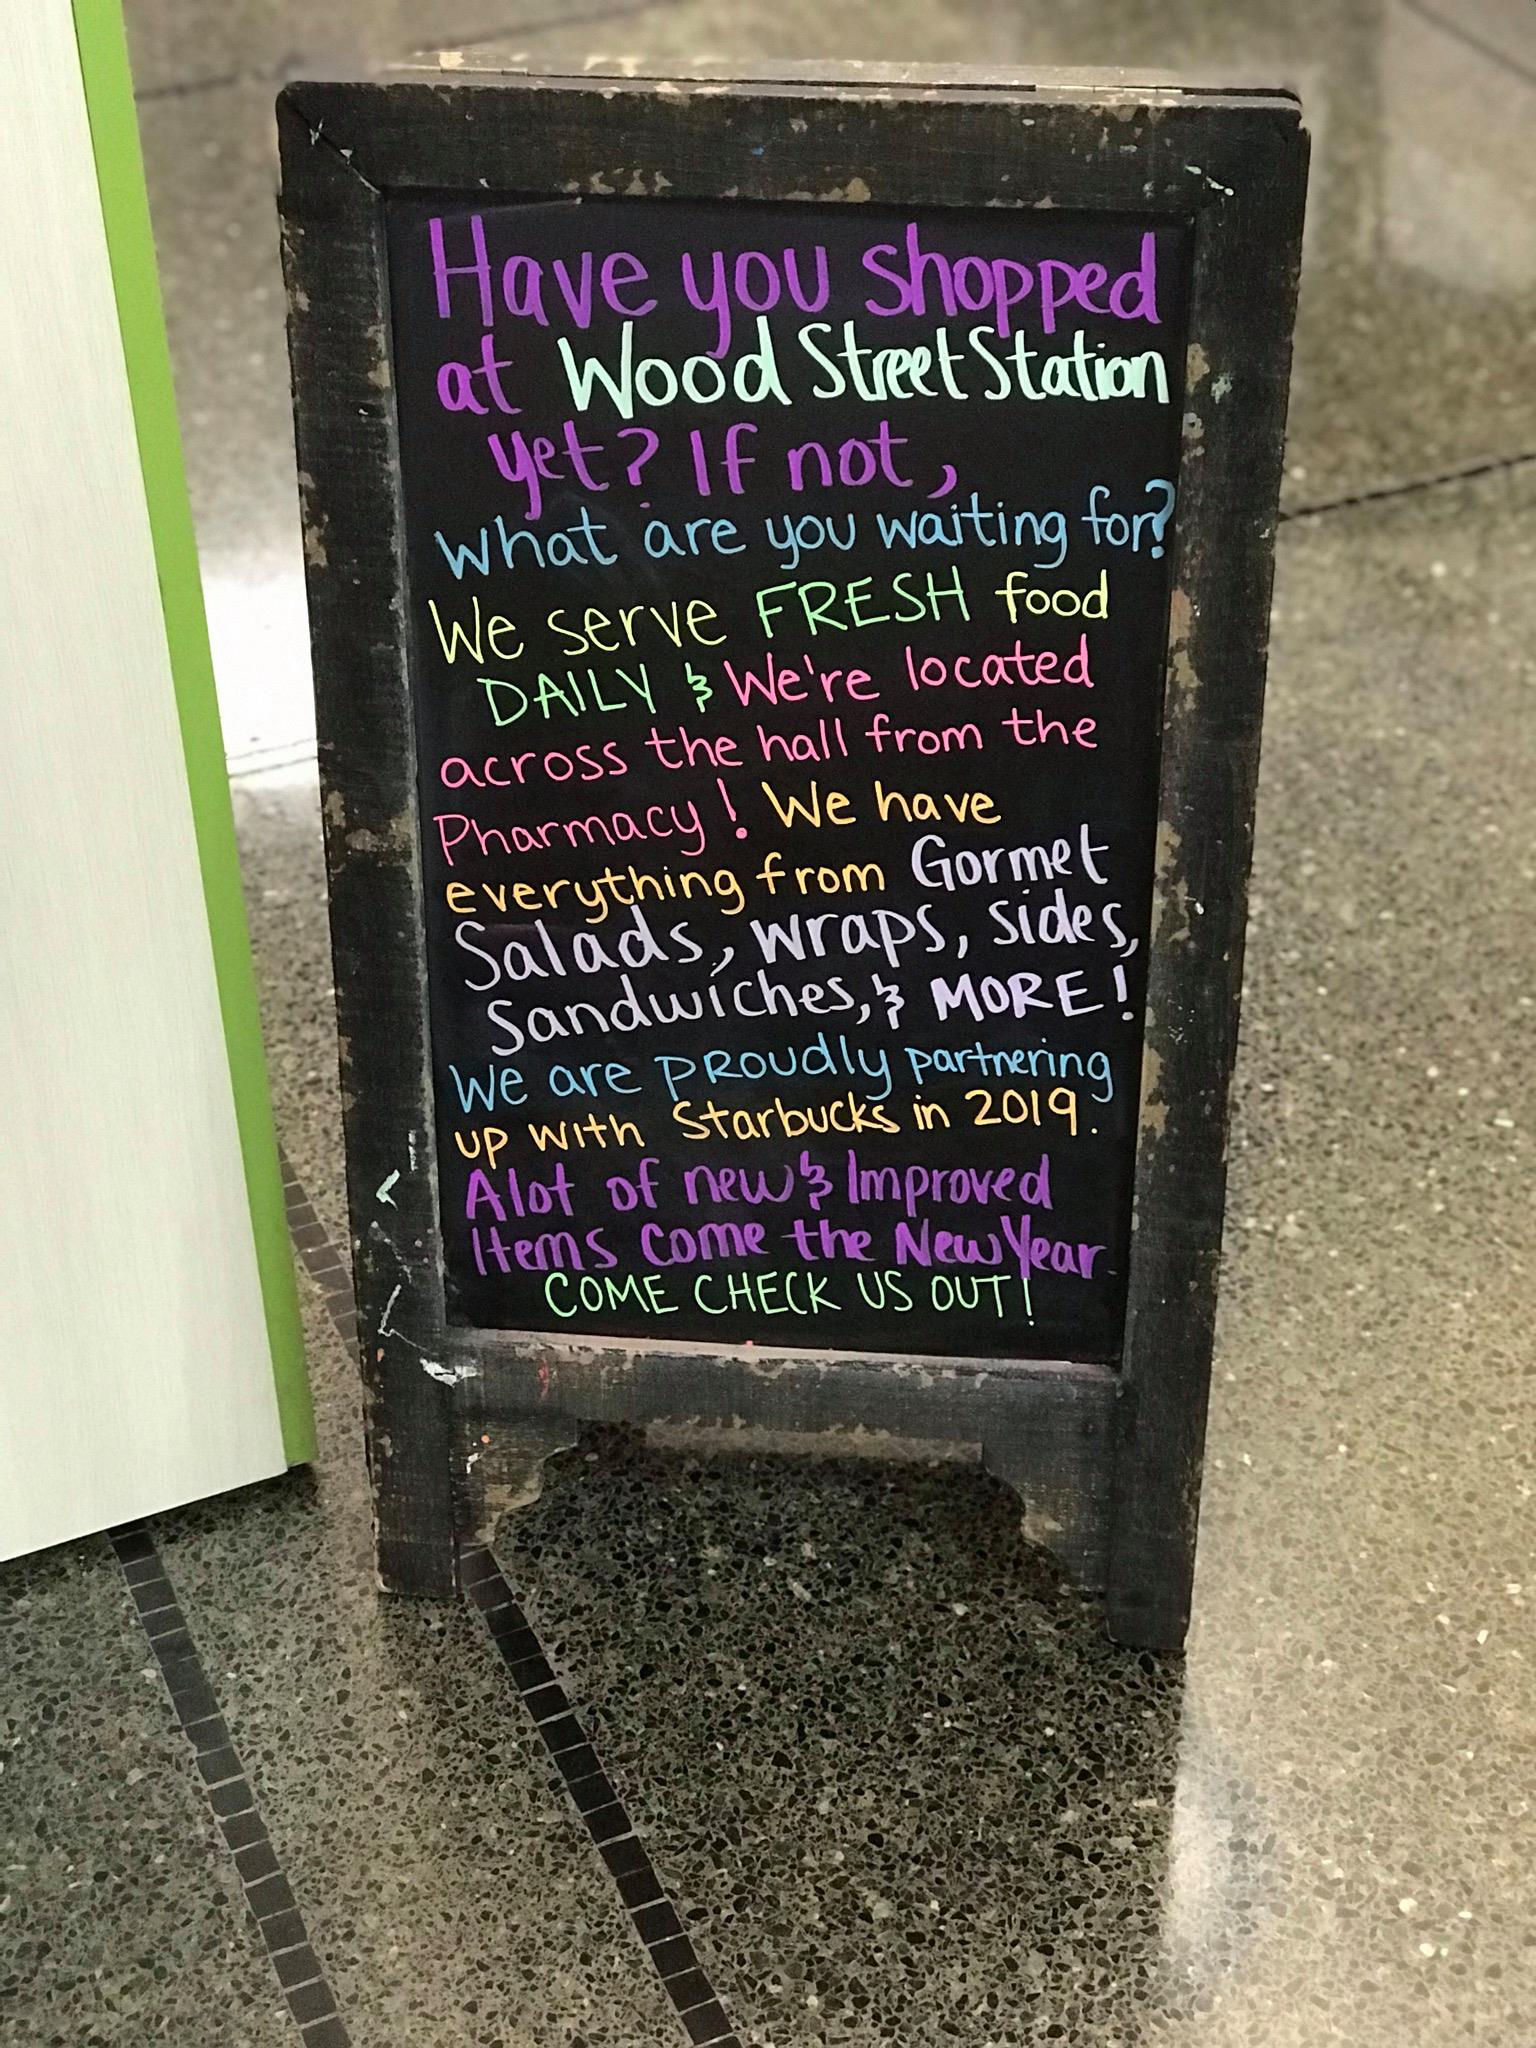 Have you shopped
at Wood Street Station
yet? If not,
what are you waiting for?
We serve FRESH food
DAILY & We're located
across the hall from the
Pharmacy! We have
everything from Gormet
Salads, wraps, sides,
Sandwiches, & MORE!
We are PROUDly partnering
up with Starbucks in 2019.
Alot of new & Improved
Items Come the New Year.
COME CHECK US OUT!